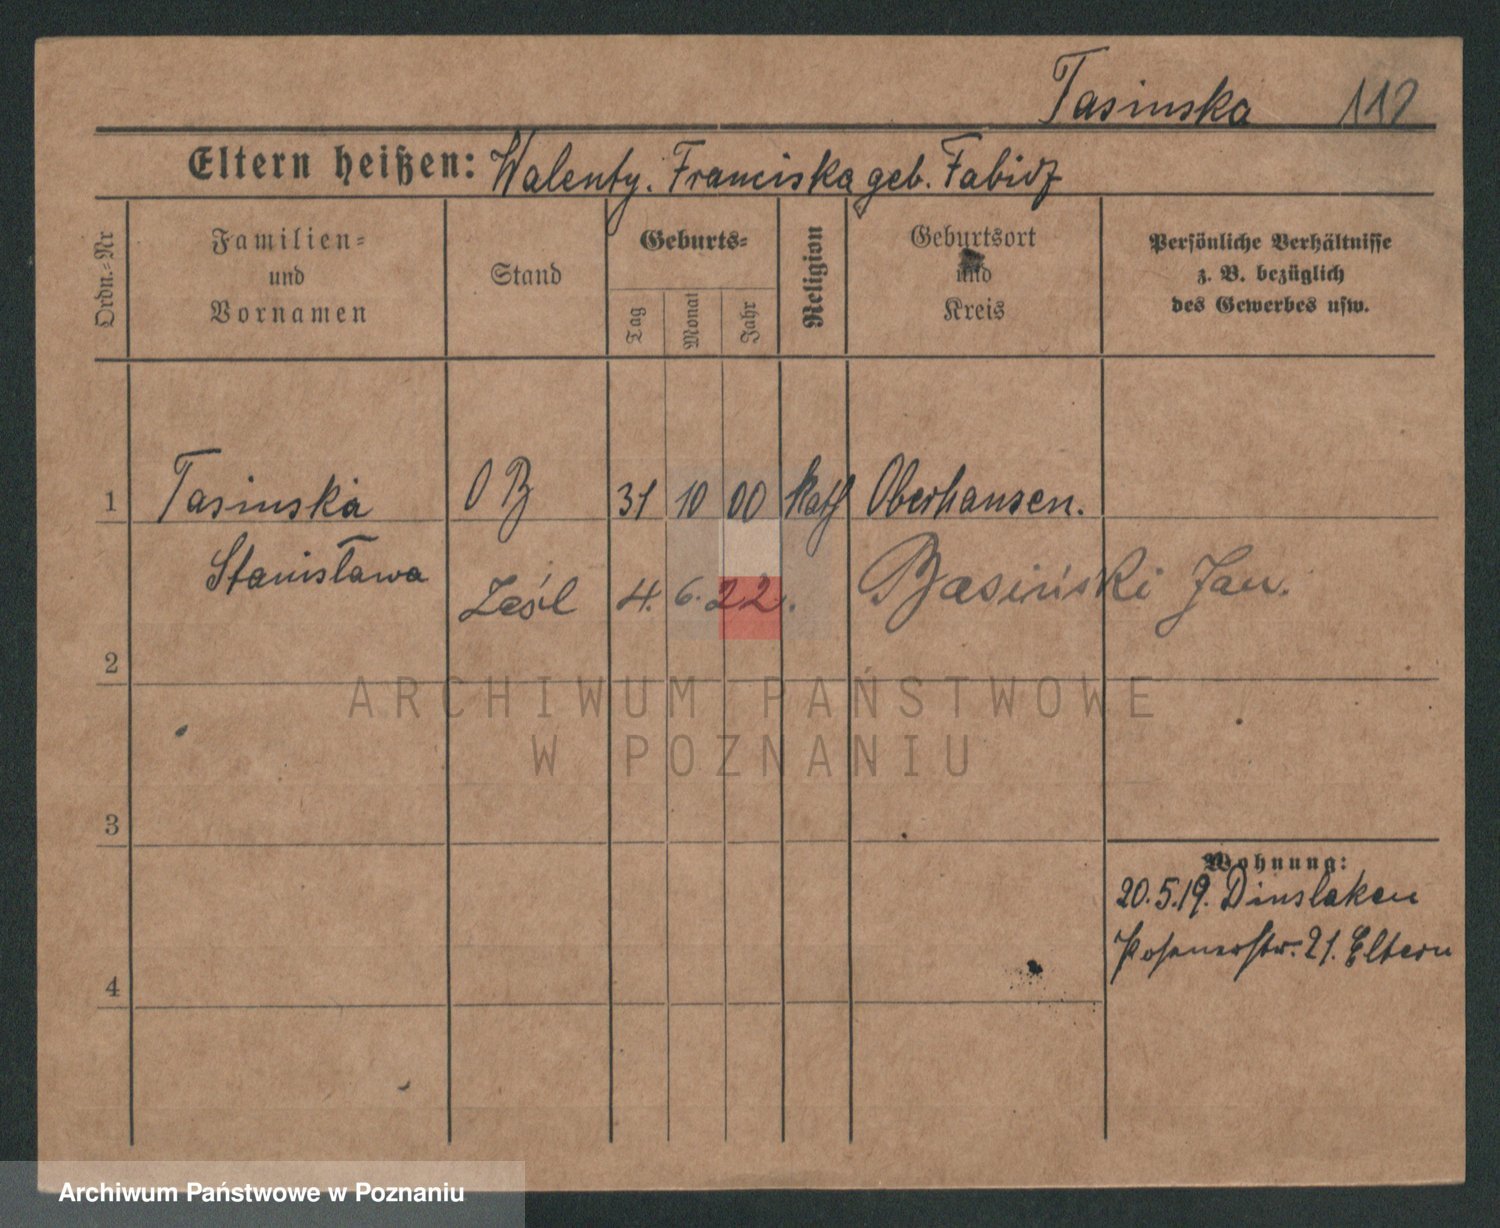 Tasinska 112
Eltern heißen: Walenty. Franciska geb. Fabidz
Ordn.-Nr
Familien-
und
Vornamen
Stand
Geburts-
Tag
Monat
Jahr
Religion
Geburtsort
und
Kreis
Persönliche Verhältnisse
z. B. bezüglich
des Gewerbes usw.
1 Tasinska O B 31 10 00 Kath Oberhausen.
Stanisława
Zaśl 4. 6. 22. Basiński Jan.
2
ARCHIWUM PAŃSTWOWE
W POZNANIU
3
Wohnung:
20.5.19. Dinslaken
Posenerstr. 21. Eltern
4
Archiwum Państwowe w Poznaniu